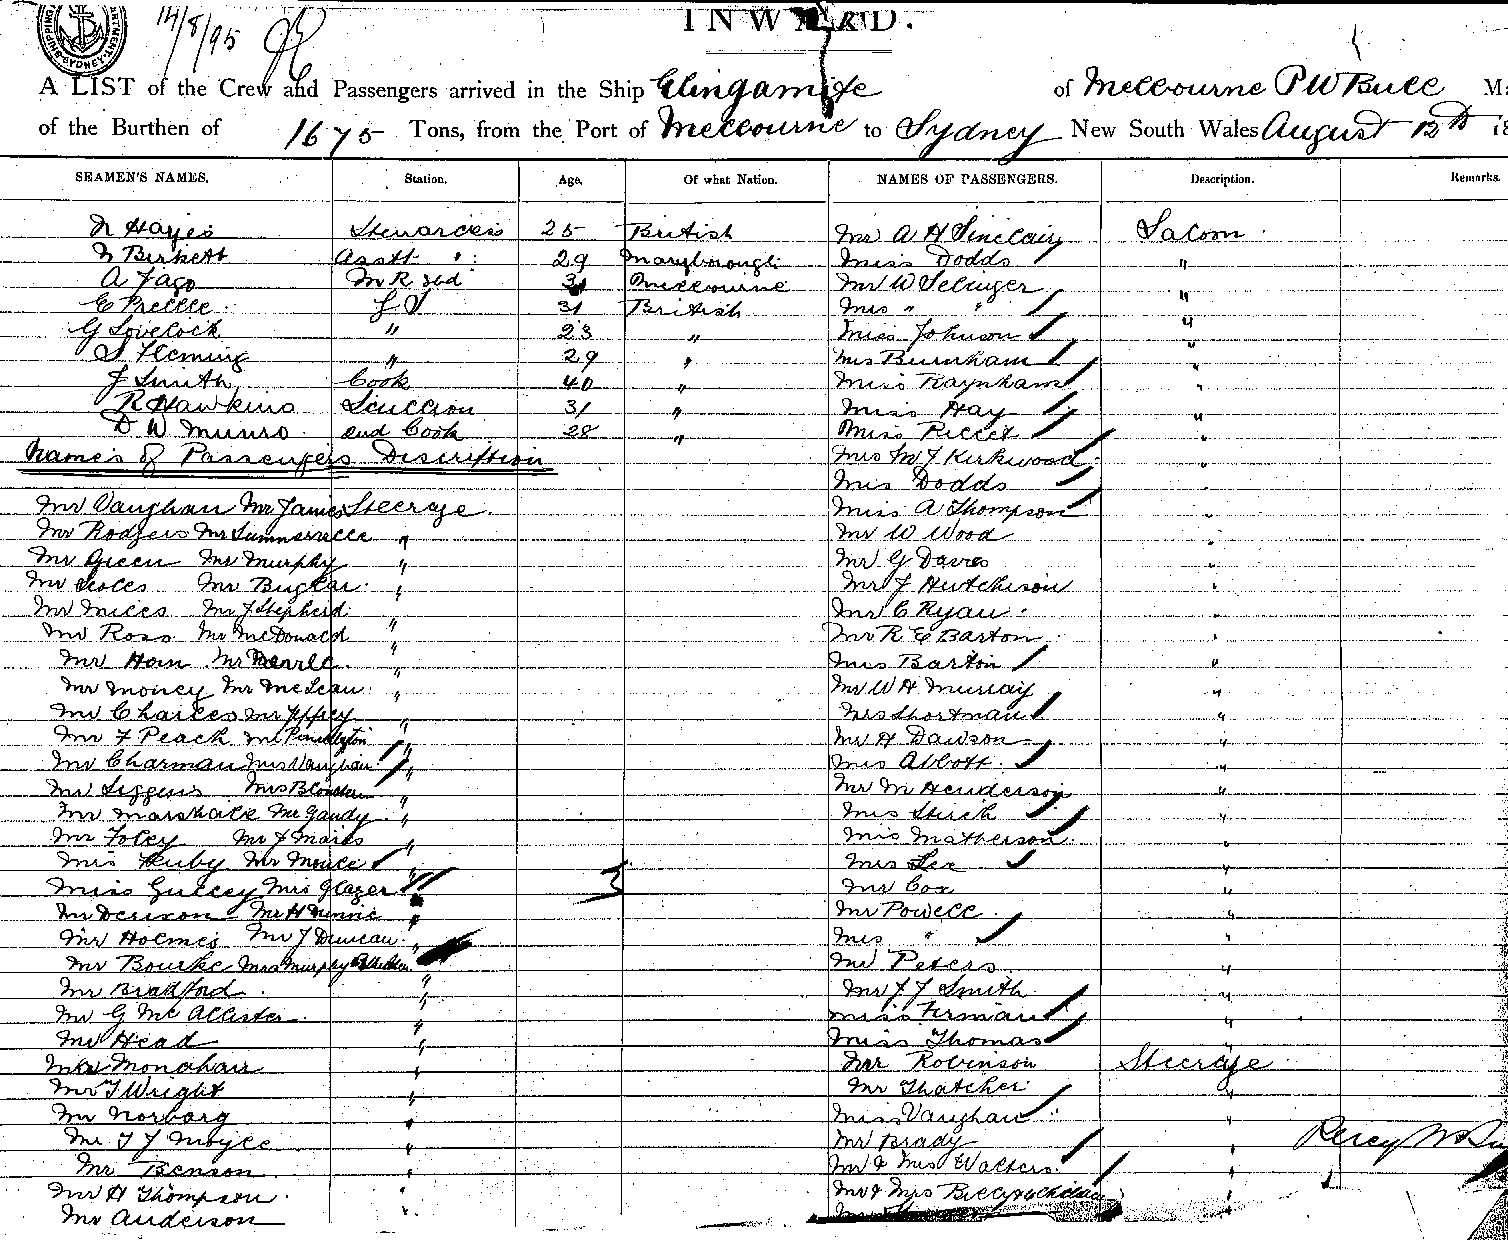 14/8/95
INWARD.
A LIST of the Crew and Passengers arrived in the Ship Elingamite of Melbourne P W Bull Ma
of the Burthen of 1675 Tons, from the Port of Melbourne to Sydney New South Wales August 13th 18
SEAMEN'S NAMES. Station. Age. Of what Nation. NAMES OF PASSENGERS. Description. Remarks.
N Hayes Stewardess 25 British Mr A H Sinclair Saloon
N Birkett Asstt " 29 Maryborough Miss Dodds "
A Jago M R Std Melbourne Mr W Selinger "
31 British Mrs " " "
G Lovelock " 23 " Miss Johnson "
S Fleming " 29 " Mrs Burnham "
J Smith Cook 40 " Miss Raynham "
R Hawkins Scullion 31 " Miss Hay "
D W Munro 2nd Cook 28 " Miss "
Names of Passengers Description Mrs M J Kirkwood "
Mrs Dodds "
Mr Vaughan Mr James Steerage Miss A Thompson "
Mr Rodgers Mr Summerville " Mr W Wood "
Mr Green Mr Murphy " Mr G Davies "
Mr Scoles Mr Buglar " Mr J Hutchison "
Mr Miles Mr J Stepherd " Mr C Ryan "
Mr Ross Mr McDonald " Mr R E Barton "
Mr Horn Mr " Mrs Barton "
Mr Money Mr McLean " Mr W H Murray "
Mr Charles Mr Jeffrey " Mrs Shortman "
Mr F Peach Mr " Mr H Dawson "
Mr Charman Mrs Vaughan " Mrs Abbott "
Mr Siggins Mrs " Mr M Henderson "
Mr Marshall Mr Gandy " Mrs "
Mr Foley Mr J " Mrs Matherson "
Mrs Huby Mr Mrs Lee "
Miss Gulley Mrs Glazer " Mr Cox "
Mr Mr H " Mr Powell "
Mr Holmes Mr J Duncan " Mrs " "
Mr Bourke Mrs Murphy " Mr Peters "
Mr Bradford " Mr J J Smith "
Mr G McAllister " Miss Firman "
Mr Head " Miss Thomas "
Monahair " Mr Robinson Steerage
Mr T Wright " Mr Thatcher "
Mr Norbarg " Miss Vaughan "
Mr T J Moyle " Mr Brady "
Mr Benson " Mr & Mrs Walters "
Mr H Thompson " Mr & Mrs "
Mr Anderson "